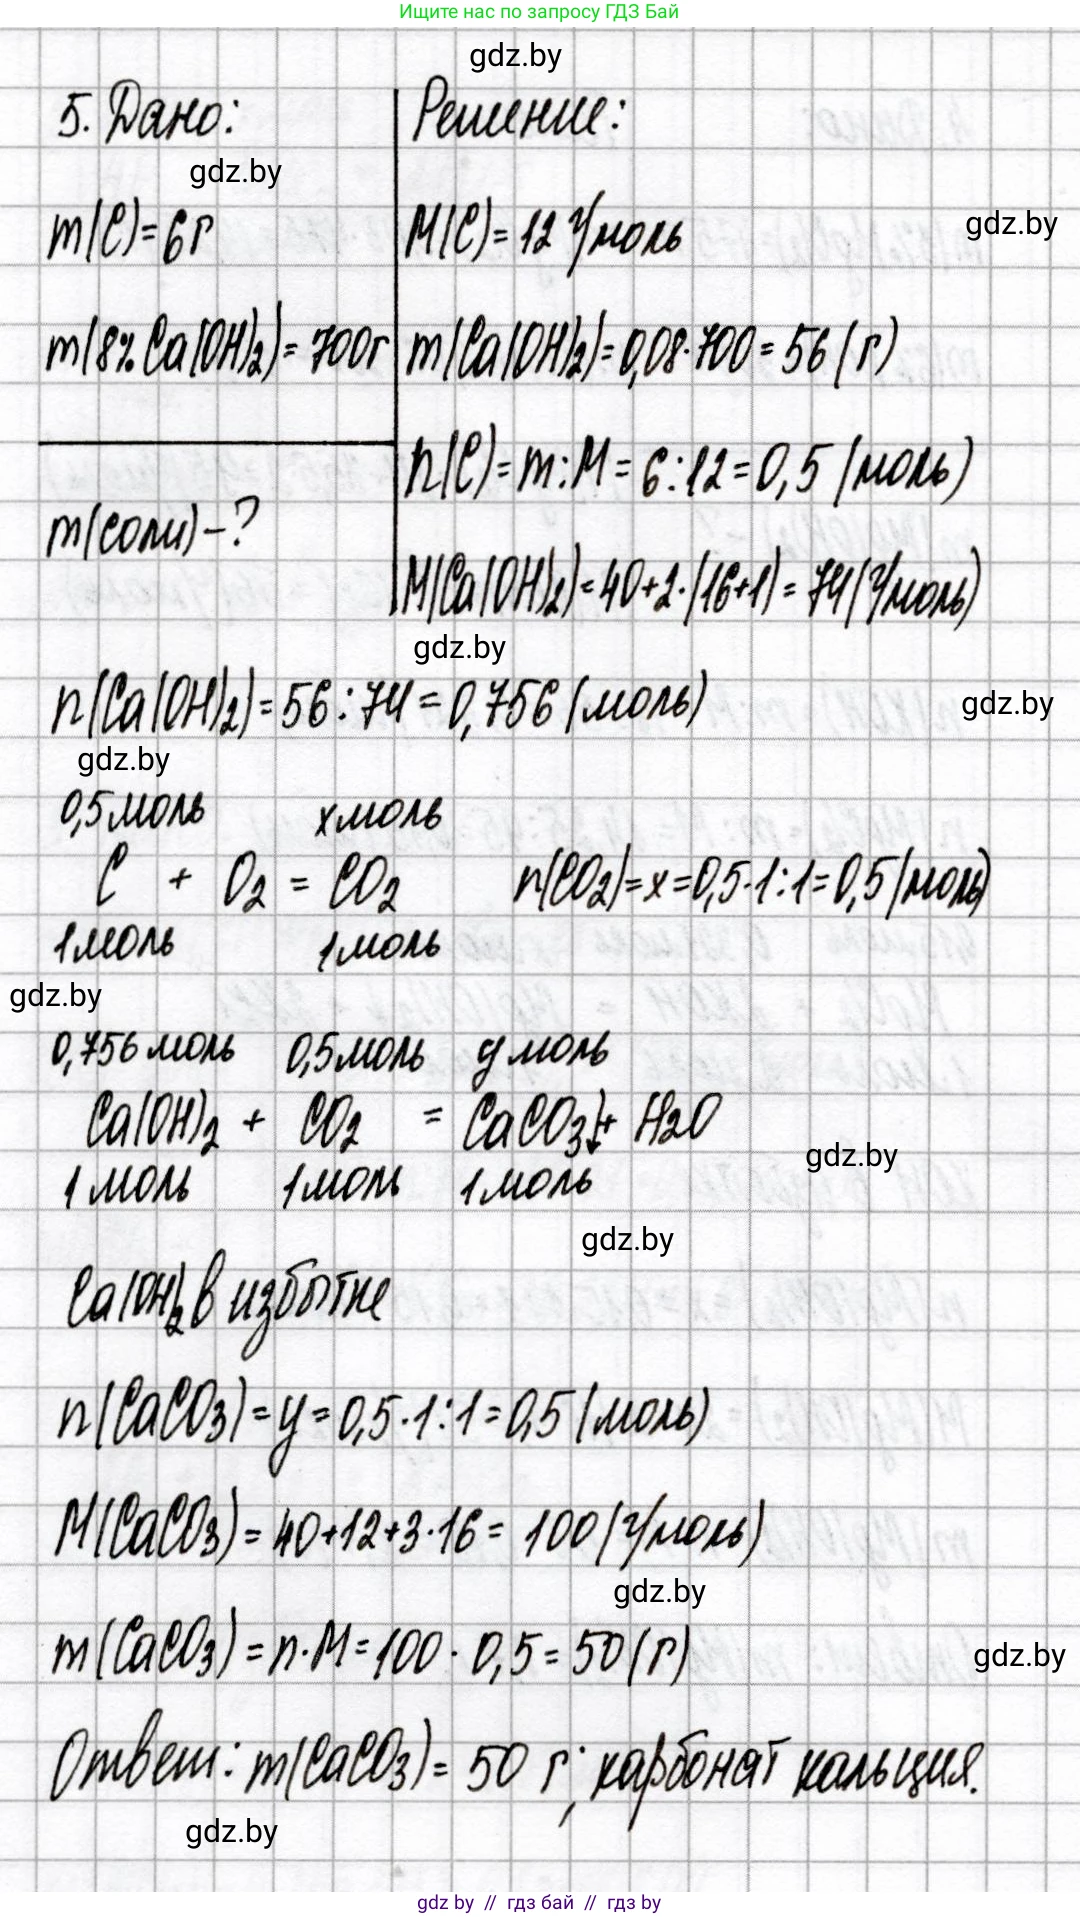 Ищите нас по запросу ГДЗ Бай
gdz.by
5. Дано:
Решение:
gdz.by
m(C)=6г
M(C)=12 г/моль
gdz.by
m(8% Ca(OH)2)=700г
m(Ca(OH)2)=0,08·700=56(г)
n(C)=m:M=6:12=0,5(моль)
m(соли)-?
M(Ca(OH)2)=40+2·(16+1)=74(г/моль)
gdz.by
n(Ca(OH)2)=56:74=0,756(моль)
gdz.by
gdz.by
0,5моль xмоль
C + O2 = CO2 n(CO2)=x=0,5·1:1=0,5(моль)
1моль 1моль
gdz.by
0,756моль 0,5моль y моль
Ca(OH)2 + CO2 = CaCO3↓+ H2O
gdz.by
1 моль 1моль 1моль
gdz.by
Ca(OH)2 в избытке
n(CaCO3)=y=0,5·1:1=0,5(моль)
M(CaCO3)=40+12+3·16=100(г/моль)
gdz.by
m(CaCO3)=n·M=100·0,5=50(г)
gdz.by
Ответ: m(CaCO3)=50 г; карбонат кальция.
gdz.by
gdz by // гдз бай // гдз by